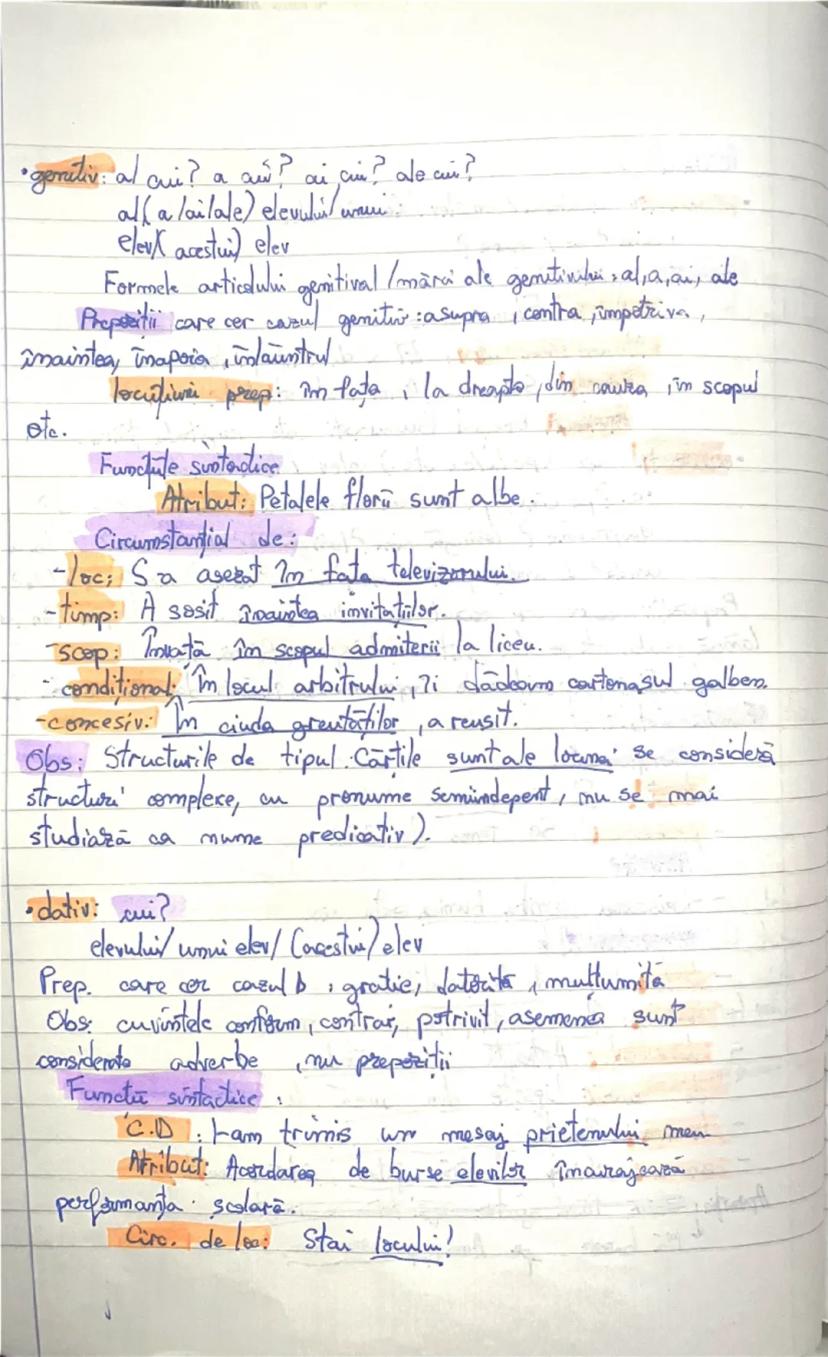 •genitiv: al cui? a cui? ai cui? ale cui?
al( a /ai/ale) elevului/unui
elev/( acestui) elev
Formele articolului genitival /mărci ale genitivului: al, a, ai, ale
Prepoziții care cer cazul genitiv: asupra, contra, împotriva,
înaintea, înapoia, înlăuntrul
locuțiuni prep: în fața, la dreapta, din cauza, în scopul
etc.
Funcțiile sintactice
Atribut: Petalele florii sunt albe.
Circumstanțial de:
-loc: S-a așezat în fața televizorului.
-timp: A sosit înaintea invitaților.
-scop: Învață în scopul admiterii la liceu.
- condițional: În locul arbitrului, îi dădeam cartonașul galben.
-concesiv: În ciuda greutăților, a reușit.
Obs: Structurile de tipul Cărțile sunt ale se consideră
structuri complexe, cu pronume semiindepent, nu se mai
studiază ca nume predicativ).
•dativ: cui?
elevului/ unui elev/ (acestui) elev
Prep. care cer cazul D: grație, datorită, mulțumită
Obs: cuvintele conform, contrar, potrivit, asemenea sunt
considerate adverbe, nu prepoziții
Functii sintactice:
C.D: I-am trimis un mesaj prietenului meu
Atribut: Acordarea de burse elevilor încurajează
performanța școlară.
Circ. de loc: Stai locului!